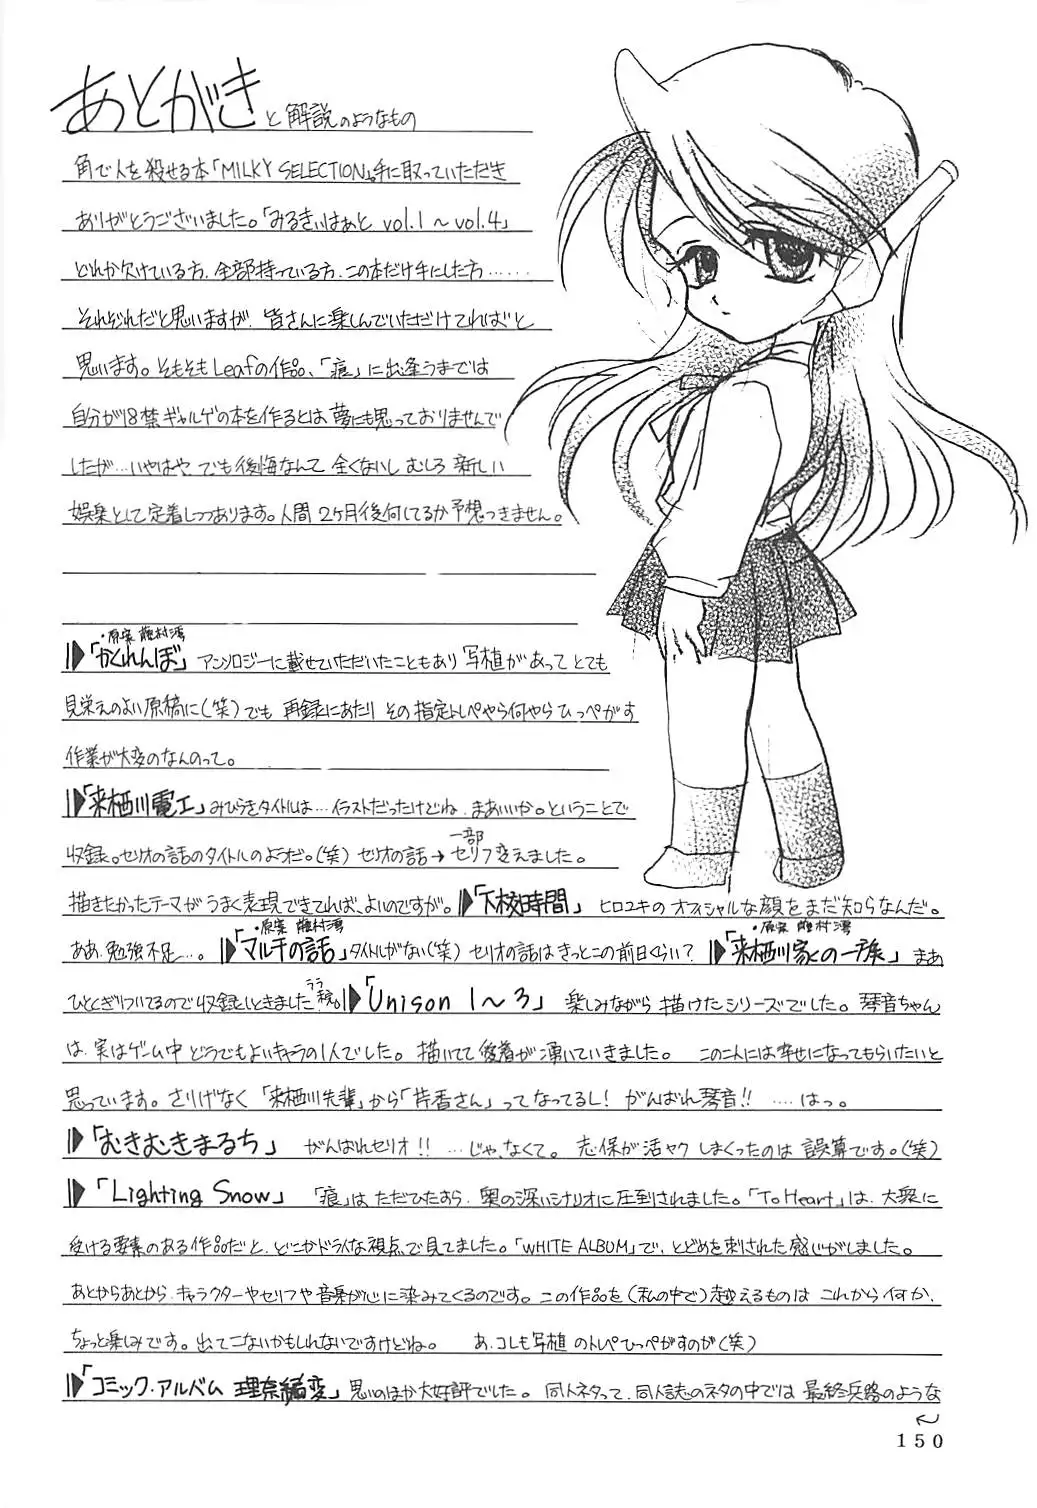 あとがき と解説のようなもの
角で人を殺せる本「MILKY SELECTION」手に取っていただき
ありがとうございました。「みるきぃはぁと vol.1～vol.4」
どれか欠けている方、全部持っている方、この本だけ手にした方……
それぞれだと思いますが、皆さんに楽しんでいただけてればと
思います。そもそもLeafの作品、「痕」に出逢うまでは
自分が18禁ギャルゲの本を作るとは夢にも思っておりませんで
したが…いやはや でも後悔なんて全くないし むしろ新しい
娯楽として定着しつつあります。人間 2ヶ月後何してるか予想つきません。
・原案 藤村湾
「かくれんぼ」 アンソロジーに載せていただいたこともあり 写植があって とても
見栄えのよい原稿に(笑)でも 再録にあたり その指定トレペやら何やら ひっぺがす
作業が大変のなんのって。
「来栖川電工」みひらきタイトルは…イラストだったけどね、まあいいか。ということで
収録。セリオの話のタイトルのようだ。(笑) セリオの話→一部セリフ変えました。
描きたかったテーマが うまく表現できてれば、よいのですが。「下校時間」 ヒロユキの オフィシャルな顔をまだ知らなんだ。
・原案 藤村湾 ・原案 藤村湾
ああ、勉強不足…。「マルチの話」タイトルがない(笑) セリオの話はきっとこの前日くらい？「来栖川家の一族」まあ
ひとくぎりついてるので収録しときました。「Unison 1～3」 楽しみながら 描けたシリーズでした。琴音ちゃん
は、実はゲーム中 どうでもよいキャラの1人でした。描いてて愛着が湧いていきました。 このこんには幸せになってもらいたいと
思っています。さりげなく 「来栖川先輩」から「芹香さん」ってなってるし！ がんばれ琴音!! ……はっ。
「むきむきまるち」 がんばれセリオ!! …じゃ、なくて。 志保が活ヤクしまくったのは 誤算です。(笑)
「Lighting Snow」 「痕」は、ただひたすら、奥の深いシナリオに圧倒されました。「To Heart」は、大衆に
受ける要素のある作品だと、どこかドライな視点で見てました。「WHITE ALBUM」で、とどめを刺された感じがしました。
あとからあとから、キャラクターやセリフや音楽が心に染みてくるのです。この作品を(私の中で)越えるものは これから何か、
ちょっと楽しみです。出てこないかもしれないですけどね。 あ、コレも写植 のトレペひっぺがすのが(笑)
「コミック・アルバム 理奈編変」思いのほか大好評でした。同人ネタって、同人誌のネタの中では 最終兵路のような
150